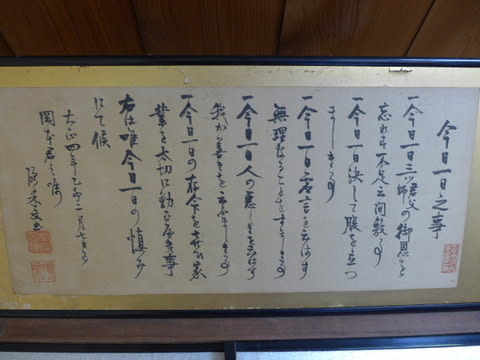 今日一日之事
一今日一日三ツ君父師の御恩を
忘れず不足を云間敷事
一今日一日決して腹を立つ
まじき事
一今日一日虚言を云はず
無理なることをすまじき事
一今日一日人の悪しきを云はず
我が善きを云ふまじき事
一今日一日の存命を喜び家
業を大切に勤むべき事
右は唯今日一日の慎み
にて候
大正四年乙卯 月七日為
岡本君之嘱